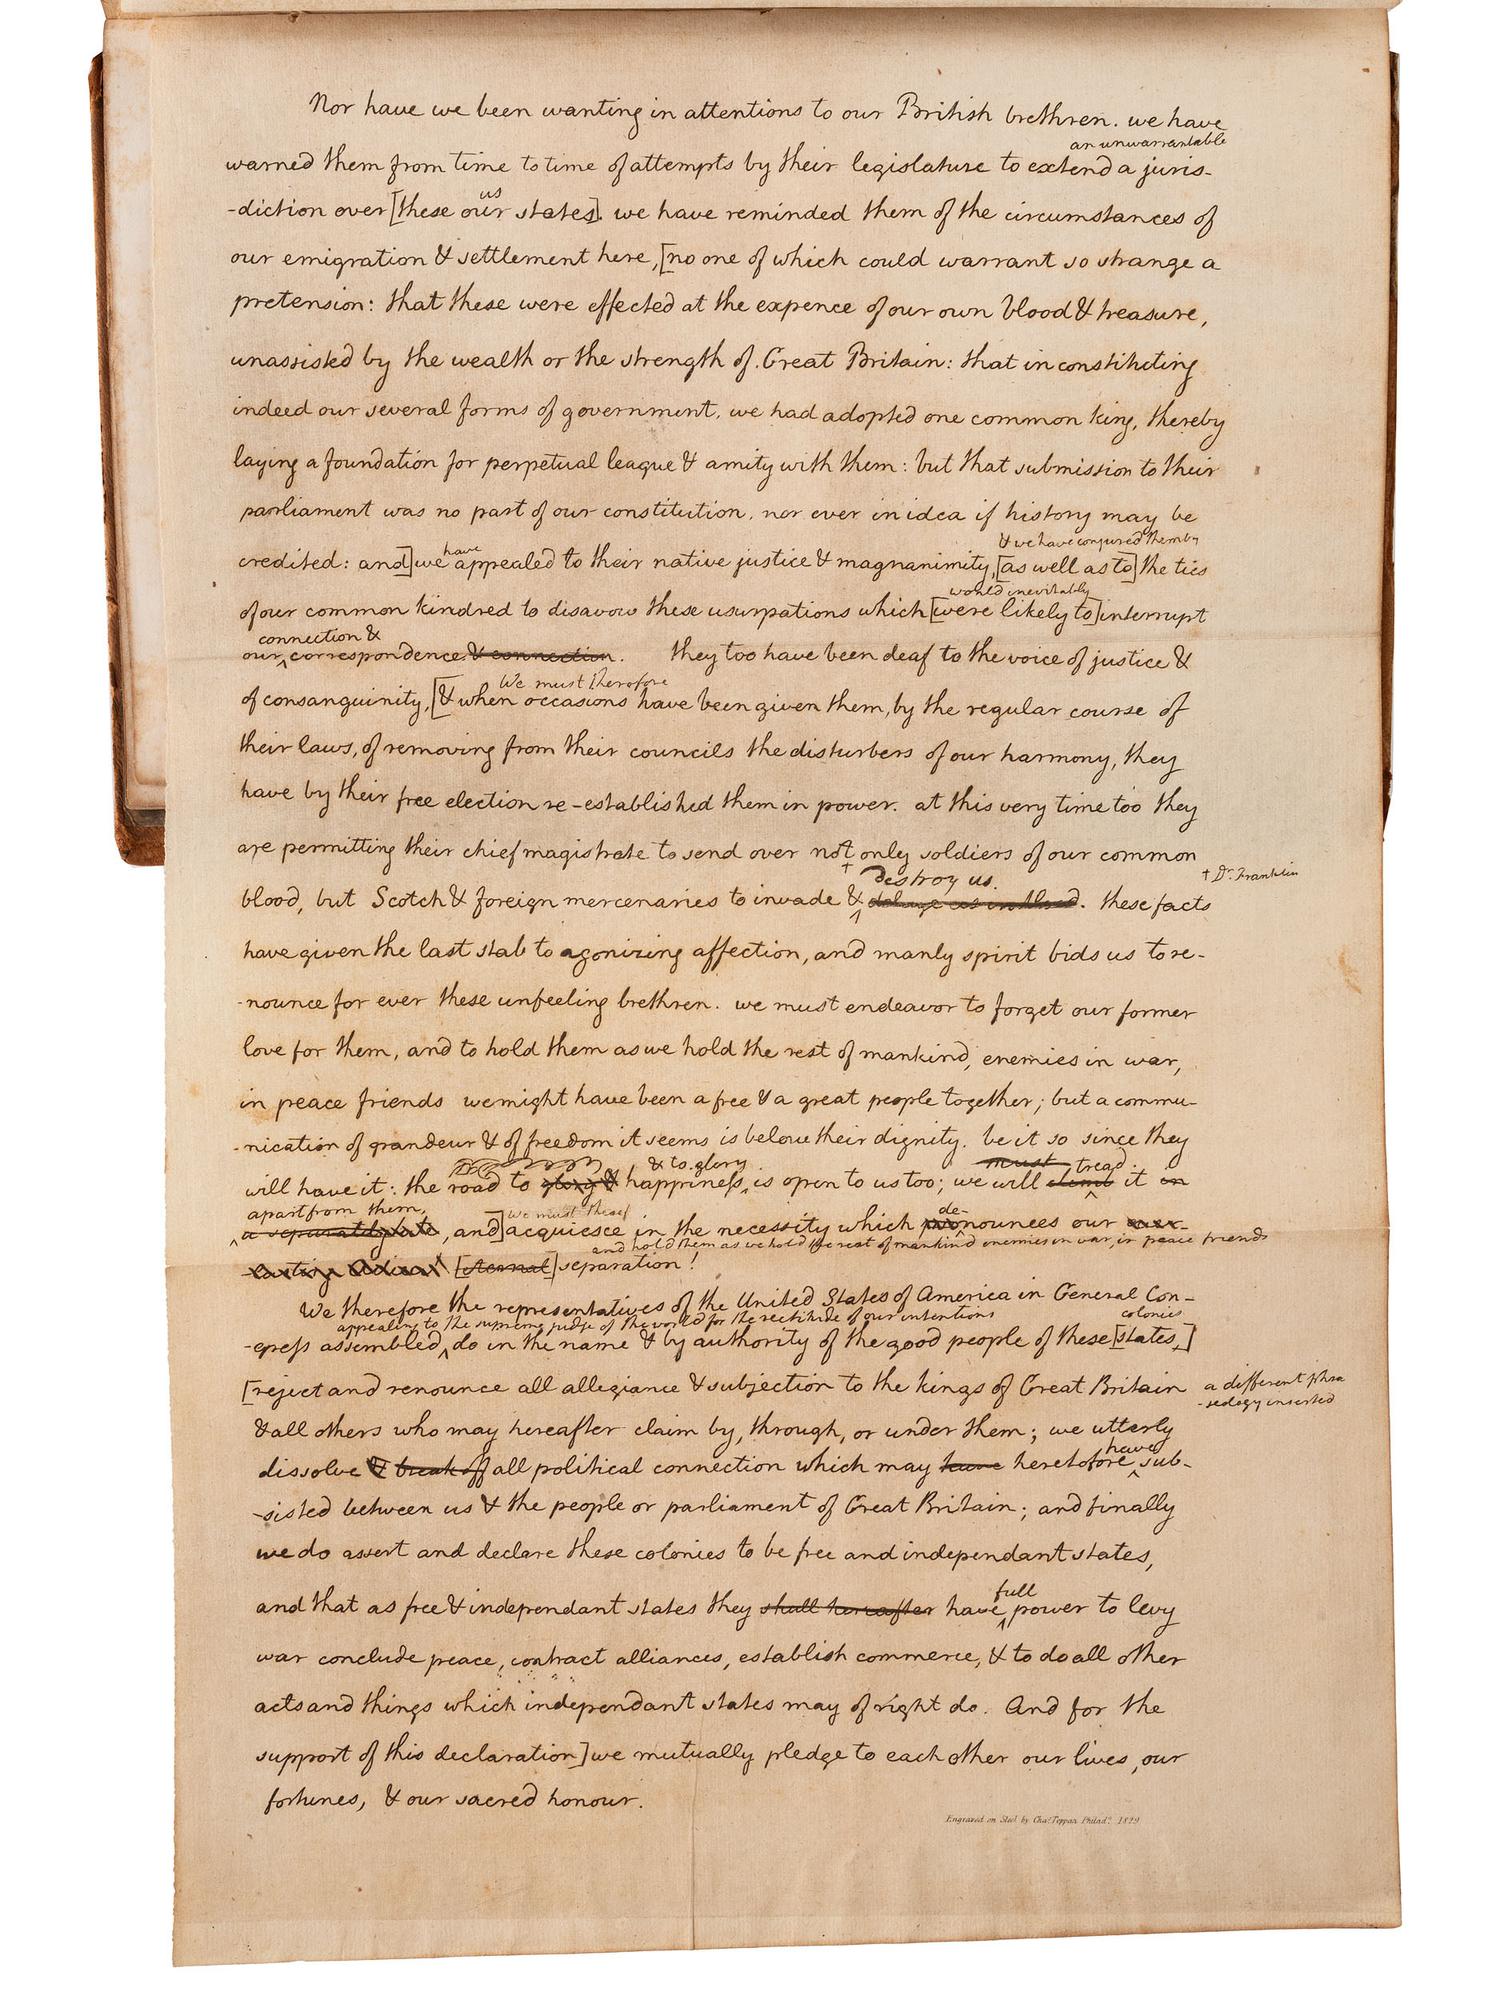 Nor have we been wanting in attentions to our British brethren. we have
an unwarrantable
warned them from time to time of attempts by their legislature to extend a juris-
us
-diction over [these our states]. we have reminded them of the circumstances of
our emigration & settlement here, [no one of which could warrant so strange a
pretension: that these were effected at the expence of our own blood & treasure,
unassisted by the wealth or the strength of Great Britain: that in constituting
indeed our several forms of government, we had adopted one common king, thereby
laying a foundation for perpetual league & amity with them: but that submission to their
parliament was no part of our constitution, nor ever in idea if history may be
have & we have conjured them by
credited: and] we appealed to their native justice & magnanimity, [as well as to] the ties
would inevitably
of our common kindred to disavow these usurpations which [were likely to] interrupt
connection &
our correspondence & connection. they too have been deaf to the voice of justice &
We must therefore
of consanguinity, [& when occasions have been given them, by the regular course of
their laws, of removing from their councils the disturbers of our harmony, they
have by their free election re-established them in power. at this very time too they
are permitting their chief magistrate to send over not only soldiers of our common
† destroy us. † Dr. Franklin
blood, but Scotch & foreign mercenaries to invade & deluge us in blood. these facts
have given the last stab to agonizing affection, and manly spirit bids us to re-
-nounce for ever these unfeeling brethren. we must endeavor to forget our former
love for them, and to hold them as we hold the rest of mankind, enemies in war,
in peace friends we might have been a free & a great people together; but a commu-
-nication of grandeur & of freedom it seems is below their dignity. be it so since they
& to glory must tread
will have it: the road to glory & happiness, is open to us too; we will climb it in
apart from them, we must theref de-
a separately state, and] acquiesce in the necessity which pronounces our ever-
and hold them as we hold the rest of mankind enemies in war, in peace friends
-lasting Adieu! [eternal] separation!
We therefore the representatives of the United States of America in General Con-
appealing to the supreme judge of the world for the rectitude of our intentions colonies
-gress assembled, do in the name & by authority of the good people of these [states,]
[reject and renounce all allegiance & subjection to the kings of Great Britain a different phra
-seology inserted
& all others who may hereafter claim by, through, or under them; we utterly
have
dissolve & break off all political connection which may have heretofore sub-
-sisted between us & the people or parliament of Great Britain; and finally
we do assert and declare these colonies to be free and independant states,
full
and that as free & independant states they shall hereafter have power to levy
war conclude peace, contract alliances, establish commerce, & to do all other
acts and things which independant states may of right do. And for the
support of this declaration] we mutually pledge to each other our lives, our
fortunes, & our sacred honour.
Engraved on Steel by Chas. Toppan Philada. 1829